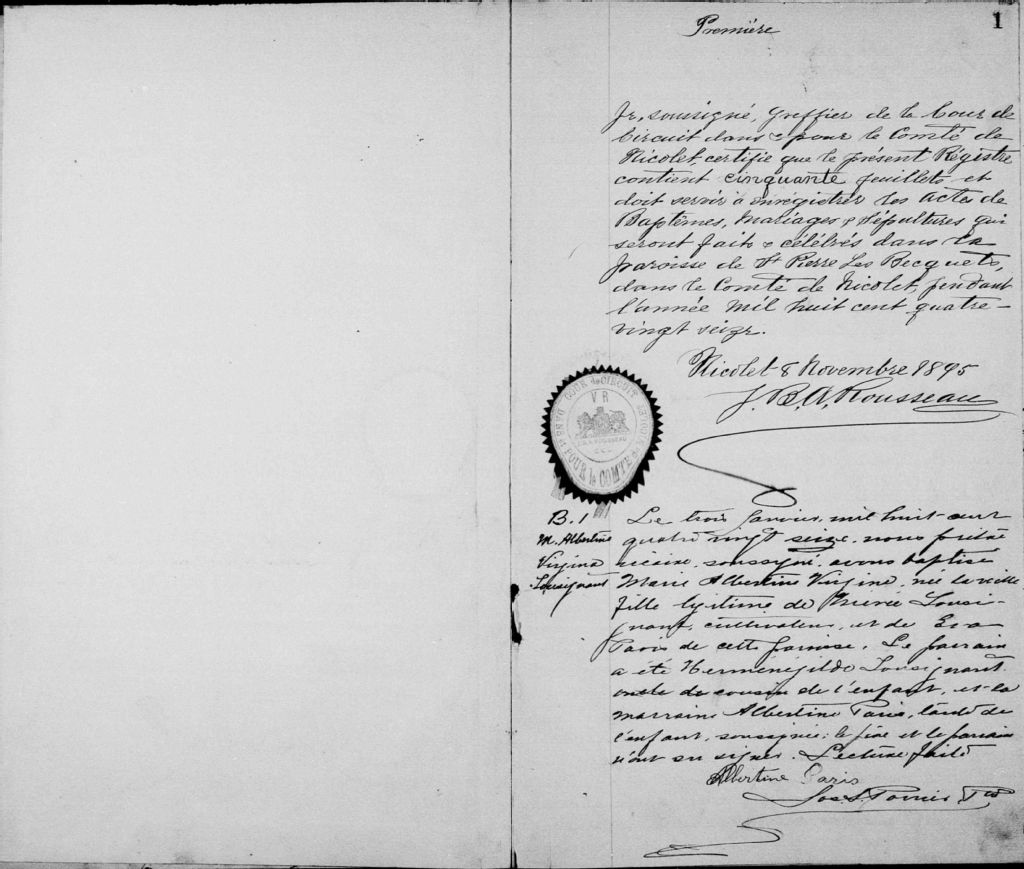 Première
1
Je, soussigné, Greffier de la Cour de
Circuit dans & pour le Comté de
Nicolet, certifie que le présent Régistre
contient cinquante feuillets et
doit servir à enrégistrer les Actes de
Baptêmes, Mariages & Sépultures qui
seront faits & célébrés dans la
paroisse de St Pierre Les Becquets,
dans le Comté de Nicolet, pendant
l'année mil huit cent quatre-
vingt seize.
Nicolet 8 Novembre 1895
J. B. A. Rousseau
COUR de CIRCUIT
VR
POUR le COMTÉ
B. 1
M. Albertine
Virgina
Lousignant
Le trois Janvier, mil huit-cent
quatre vingt seize, nous prêtre
vicaire, soussigné, avons baptisé
Marie Albertine Virgine, née la veille
fille légitime de Lousi-
gnant, cultivateur, et de Eva
Paris de cette paroisse. Le parrain
a été Herménégilde Lousignant
oncle de cousin de l'enfant, et la
marraine Albertine Paris, tante de
l'enfant, soussignée; le père et le parrain
n'ont su signer. Lecture faite
Albertine Paris
Ptre